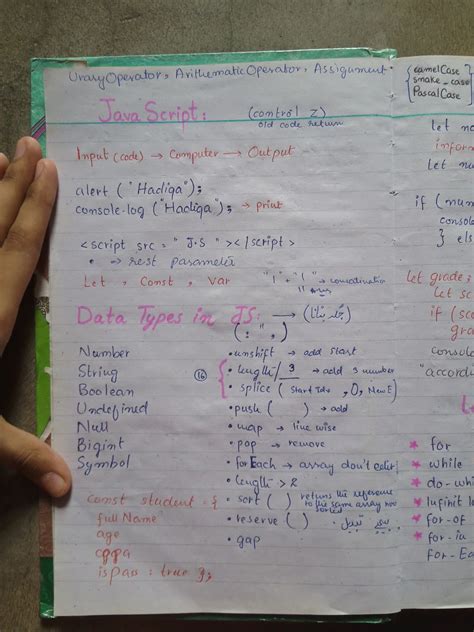 Urary Operator, Arithematic Operator, Assignment
Java Script:
(control Z)
old code return
Input (code) → Computer → Output
alert ("Hadiqa");
console.log ("Hadiqa"); → print
<script src = "J.S" ></script>
• → rest parameter
Let, Const, Var
"1" + "1"
11
Data Types in JS:
Number
String
Boolean
Undefined
Null
Bigint
Symbol
const student = {
full Name
age
cgpa
ispass : true };
• unshift → add start
16
• length/3 → add 3 number
• splice (Start Idx, 0, New E)
• push ( ) → add
• map → line wise
• pop → remove
• forEach → array don't edit
• length > 2
• sort ( ) returns the reference
to the same array now
sorted
• reserve ( )
• gap
{ camelCase
snake_case
PascalCase
Let
infor
Let nu
if (num
conso
} els
Let grade;
Let sc
if (sco
gra
conso
"accordi
L
* for
* while
* do-whi
* Infinit l
* for-of
* for-in
for-Ea